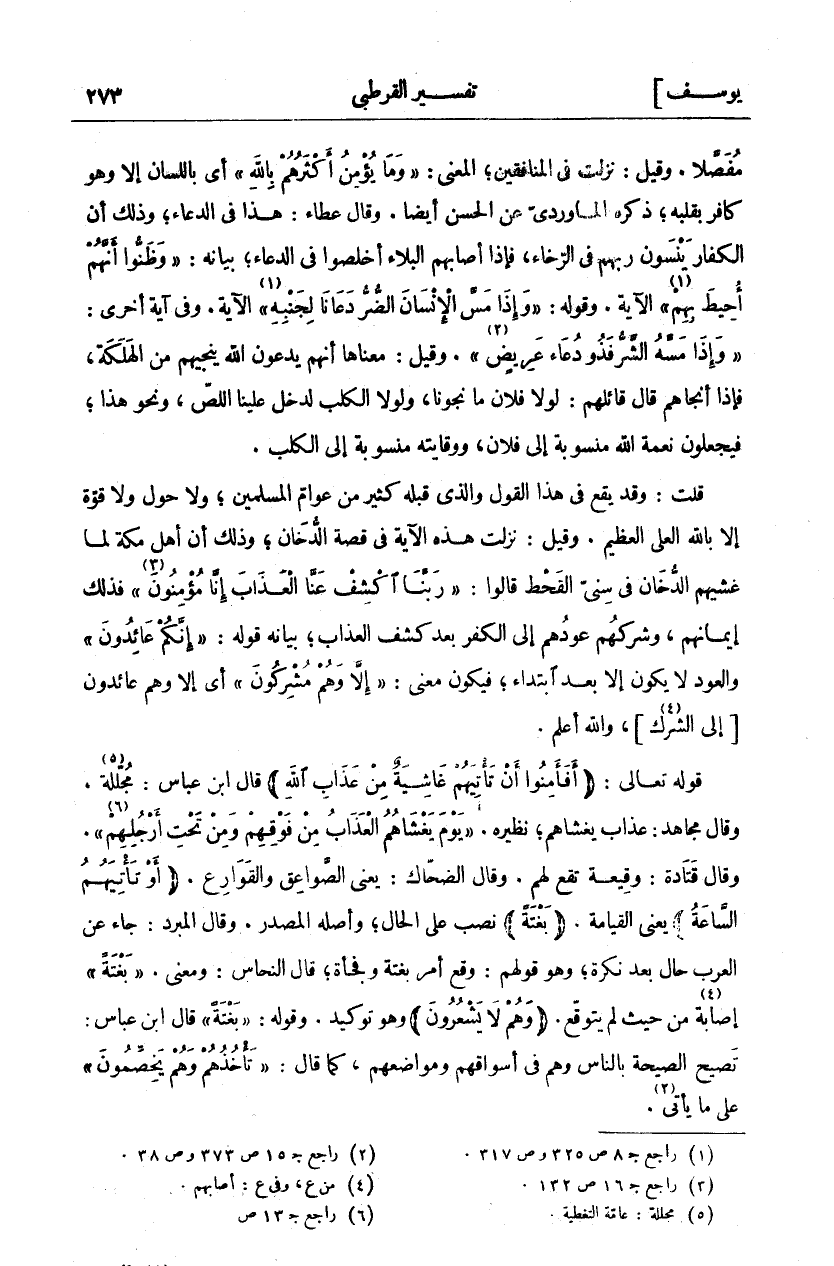 يوسف] تفسير القرطبى ٢٧٣
مُفَصَّلا . وقيل : نزلت فى المنافقين؛ المعنى : « وَمَا يُؤْمِنُ أَكْثَرُهُمْ بِاللهِ » أى باللسان إلا وهو
كافر بقلبه؛ ذكره المـاوردىّ عن الحسن أيضا . وقال عطاء : هـذا فى الدعاء؛ وذلك أن
الكفار يَنْسَون ربهم فى الرّخاء، فإذا أصابهم البلاء أخلصوا فى الدعاء؛ بيانه : « وَظَنُّوا أَنَّهُمْ
أُحِيطَ بِهِمْ(١)» الآية . وقوله : «وَإِذَا مَسَّ الْإِنْسَانَ الضُّرُّ دَعَانَا لِجَنْبِهِ(١)» الآية . وفى آية أخرى :
« وَإِذَا مَسَّهُ الشَّرُّ فَذُو دُعَاء عَرِيضٍ(٢) » . وقيل : معناها أنهم يدعون الله ينجيهم من الهَلَكَة ،
فإذا أنجاهم قال قائلهم : لولا فلان ما نجونا، ولولا الكلب لدخل علينا اللصّ ، ونحو هذا ؛
فيجعلون نعمة الله منسوبة إلى فلان، ووقايته منسوبة إلى الكلب .
قلت : وقد يقع فى هذا القول والذى قبله كثير من عوامّ المسلمين ؛ ولا حول ولا قوّة
إلا بالله العلى العظيم . وقيل : نزلت هـذه الآية فى قصة الدُّخَان ؛ وذلك أن أهل مكة لمـا
غشيهم الدُّخَان فى سِنِىّ القَحْط قالوا : « رَبَّنَـا ٱكْشِفْ عَنَّا الْعَـذَابَ إِنَّا مُؤْمِنُونَ(٣) » فذلك
إيمـانهم ، وشركهُم عودُهم إلى الكفر بعد كشف العذاب؛ بيانه قوله : « إِنَّكُمْ عَائِدُونَ »
والعود لا يكون إلا بعـد ٱبتداء ؛ فيكون معنى : « إِلَّا وَهُمْ مُشْرِكُونَ » أى إلا وهم عائدون
[ إلى الشرك(٤) ] ، والله أعلم .
قوله تعـالى : ﴿ أَفَأَمِنُوا أَنْ تَأْتِيَهُمْ غَاشِـيَةٌ مِنْ عَذَابِ ٱللهِ ﴾ قال ابن عباس : مُجَلِّلة(٥) .
وقال مجاهد: عذاب يغشاهم؛ نظيره . «يَوْمَ يَغْشَاهُمُ الْعَذَابُ مِنْ فَوْقِهِمْ وَمِنْ تَحْتِ أَرْجُلِهِمْ(٦)» .
وقال قَتَادة : وقِيعـة تقع لهم . وقال الضحّاك : يعنى الصَّواعق والقَوَارِع . ﴿ أَوْ تَـأْتِيَهُـمُ
السَّاعَةُ ﴾ يعنى القيامة . ﴿ بَغْتَةً ﴾ نصب على الحال؛ وأصله المصدر . وقال المبرد : جاء عن
العرب حال بعد نكرة؛ وهو قولهم : وقع أمر بغتة وفجأة؛ قال النحاس : ومعنى . « بَغْتَةً »
إصابة(٤) من حيث لم يتوقّع . ﴿ وَهُمْ لَا يَشْعُرُونَ ﴾ وهو توكيد . وقوله : «بَغْتَةً» قال ابن عباس :
تَصيح الصيحة بالناس وهم فى أسواقهم ومواضعهم ، كما قال : « تَأْخُذُهُمْ وَهُمْ يَخِصِّمُونَ »
على ما يأتى(٢) .
(١) راجع جـ ٨ ص ٣٢٥ و ص ٣١٧ . (٢) راجع جـ ١٥ ص ٣٧٣ و ص ٣٨ .
(٣) راجع جـ ١٦ ص ١٣٢ . (٤) من ع، وفى ع : أصابهم .
(٥) مجللة : عامّة التغطية . (٦) راجع جـ ١٣ ص